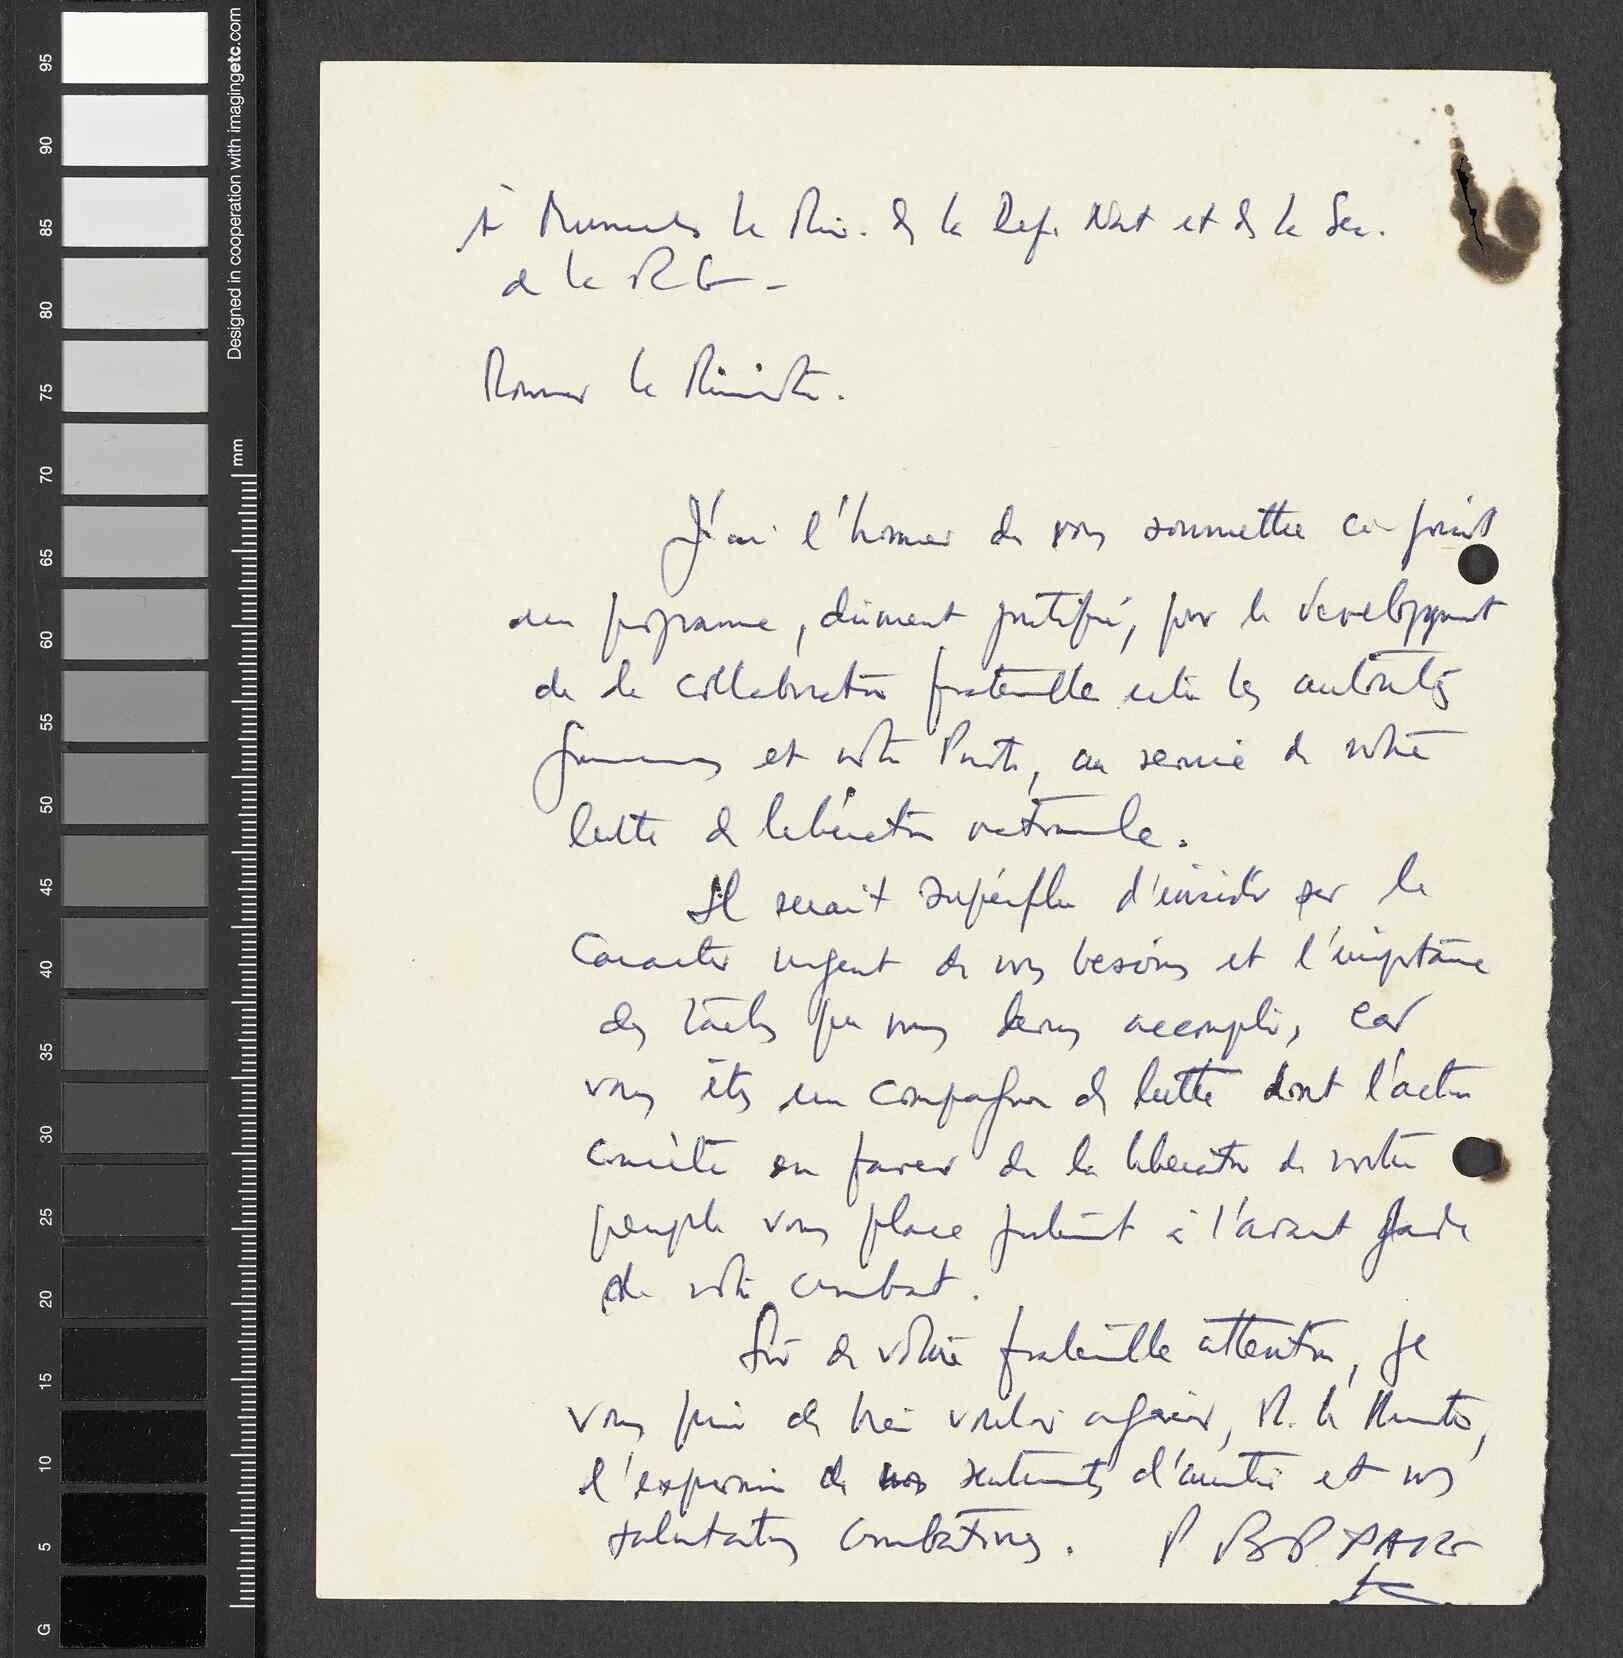 95
90
85
80
75
70
65
60
55
50
45
40
35
30
25
20
15
10
5
G
Designed in cooperation with imagingetc.com
mm
à Monsieur le Min. de la Def. Nat et de la Sec.
de la RG -
Monsieur le Ministre.
J'ai l'honneur de vous soummettre ci-joint
un programme, dûment justifié, pour le développement
de la collaboration fraternelle entre les autorités
guinéennes et notre Parti, au service de notre
lutte de libération nationale.
Il serait superflu d'insister sur le
caractère urgent de nos besoins et l'importance
des tâches que nous devons accomplir, car
vous êtes un compagnon de lutte dont l'action
concrète en faveur de la libération de notre
peuple vous place justement à l'avant garde
de notre combat.
Sûr de votre fraternelle attention, je
vous prie de bien vouloir agréer, M. le Ministre,
l'expression de nos sentiments d'amitié et nos
salutations combatives. P BP PAIG